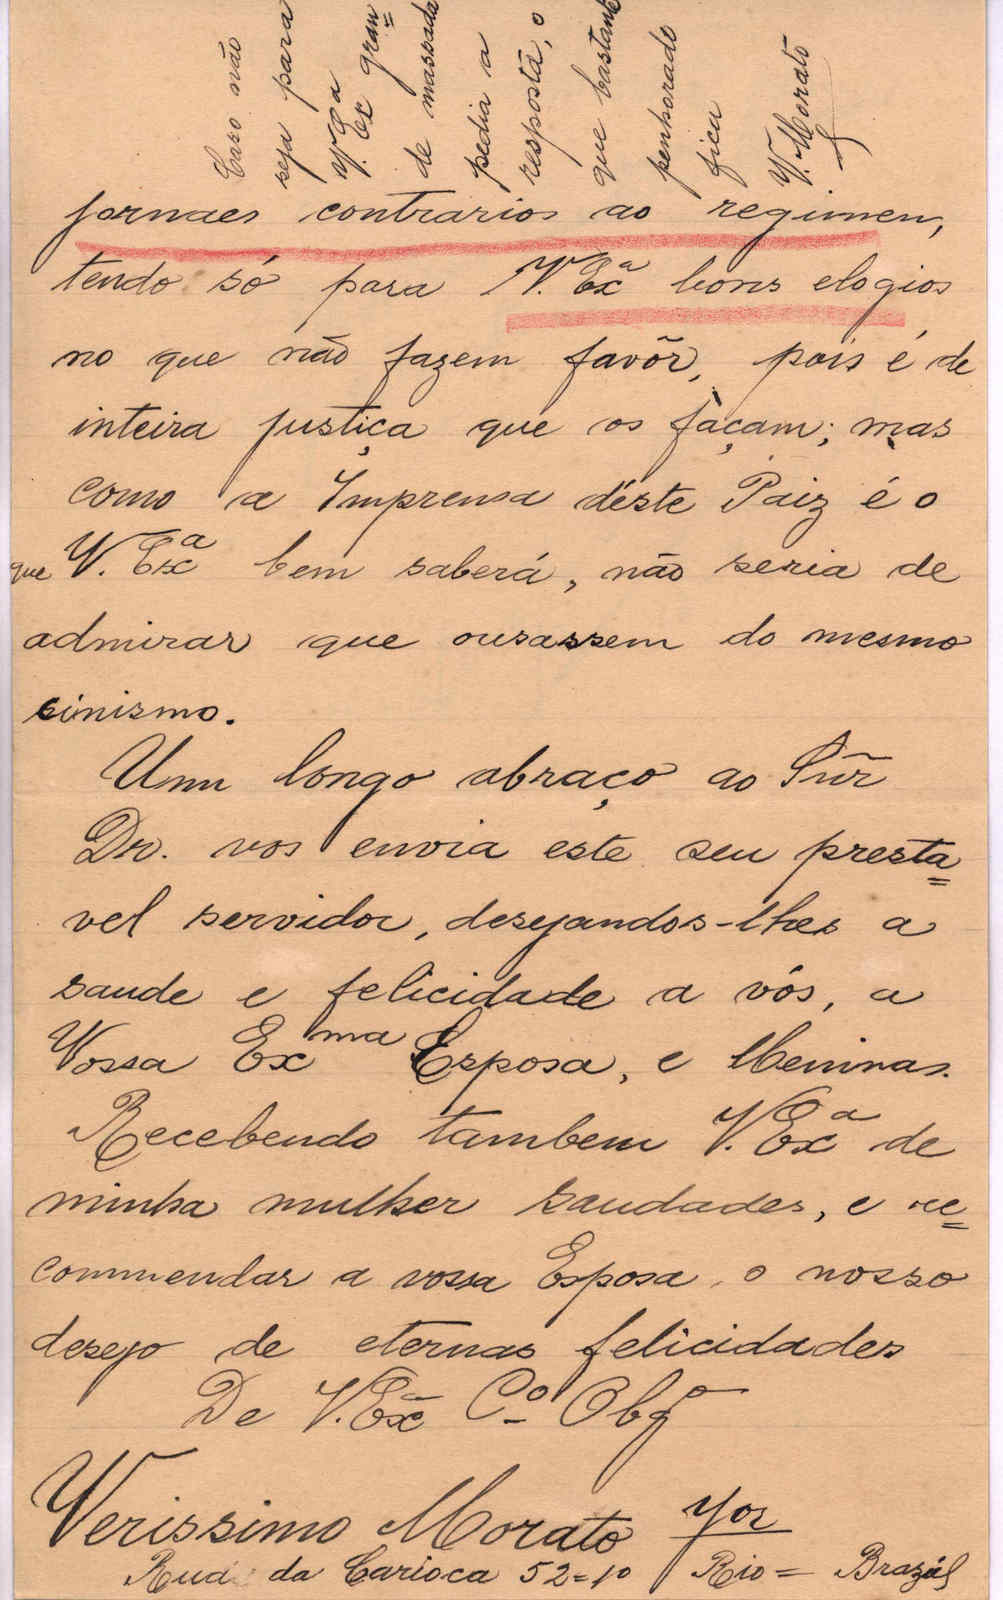 Caso não
seja para
V. Exª gran=
de massada
pedia a
resposta, o
que bastante
penhorado
fica
V. Morato
jornaes contrarios ao regimen,
tendo só para V. Exª bons elogios
no que não fazem favôr, pois é de
inteira justiça que os façam; mas
como a Imprensa déste Paiz é o
que V. Exª bem saberá, não seria de
admirar que ousassem do mesmo
sinismo.
Um longo abraço ao Snr̃
Dr. vos envia este seu presta=
vel servidor, desejandos-lhes a
saude e felicidade a vós, a
Vossa Exma Esposa, e Meninas.
Recebendo tambem V. Exª de
minha mulher saudades, e re=
commendar a vossa Esposa, o nosso
desejo de eternas felicidades
De V. Exª Cº Obgº
Verissimo Morato
Rua da Carioca 52=1º Rio = Brazil